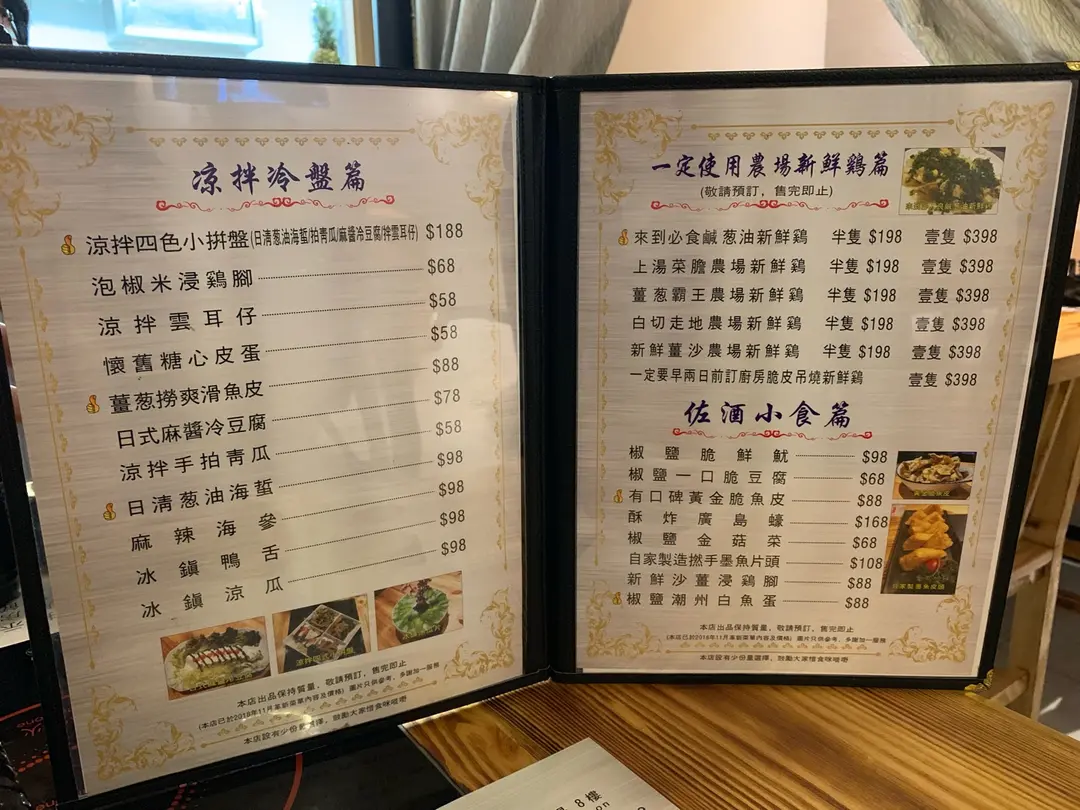 涼拌冷盤篇
涼拌四色小拼盤(日清葱油海蜇/拍青瓜/麻醬冷豆腐/拌雲耳仔) $188
泡椒米浸鷄腳 $68
涼拌雲耳仔 $58
懷舊糖心皮蛋 $58
薑葱撈爽滑魚皮 $88
日式麻醬冷豆腐 $78
涼拌手拍青瓜 $58
日清葱油海蜇 $98
麻辣海參 $98
冰鎮鴨舌 $98
冰鎮涼瓜 $98
本店出品保持質量，敬請預訂，售完即止
(本店已於2018年11月革新菜單內容及價格) 圖片只供參考，多謝加一服務
本店設有少份量選擇，鼓勵大家惜食咪嘥嘢
一定使用農場新鮮鷄篇
(敬請預訂，售完即止)
來到必食鹹葱油新鮮鷄 半隻 $198 壹隻 $398
上湯菜膽農場新鮮鷄 半隻 $198 壹隻 $398
薑葱霸王農場新鮮鷄 半隻 $198 壹隻 $398
白切走地農場新鮮鷄 半隻 $198 壹隻 $398
新鮮薑沙農場新鮮鷄 半隻 $198 壹隻 $398
一定要早兩日前訂廚房脆皮吊燒新鮮鷄 壹隻 $398
佐酒小食篇
椒鹽脆鮮魷 $98
椒鹽一口脆豆腐 $68
有口碑黃金脆魚皮 $88
酥炸廣島蠔 $168
椒鹽金菇菜 $68
自家製造撚手墨魚片頭 $108
新鮮沙薑浸鷄腳 $88
椒鹽潮州白魚蛋 $88
本店出品保持質量，敬請預訂，售完即止
(本店已於2018年11月革新菜單內容及價格) 圖片只供參考，多謝加一服務
本店設有少份量選擇，鼓勵大家惜食咪嘥嘢
8樓